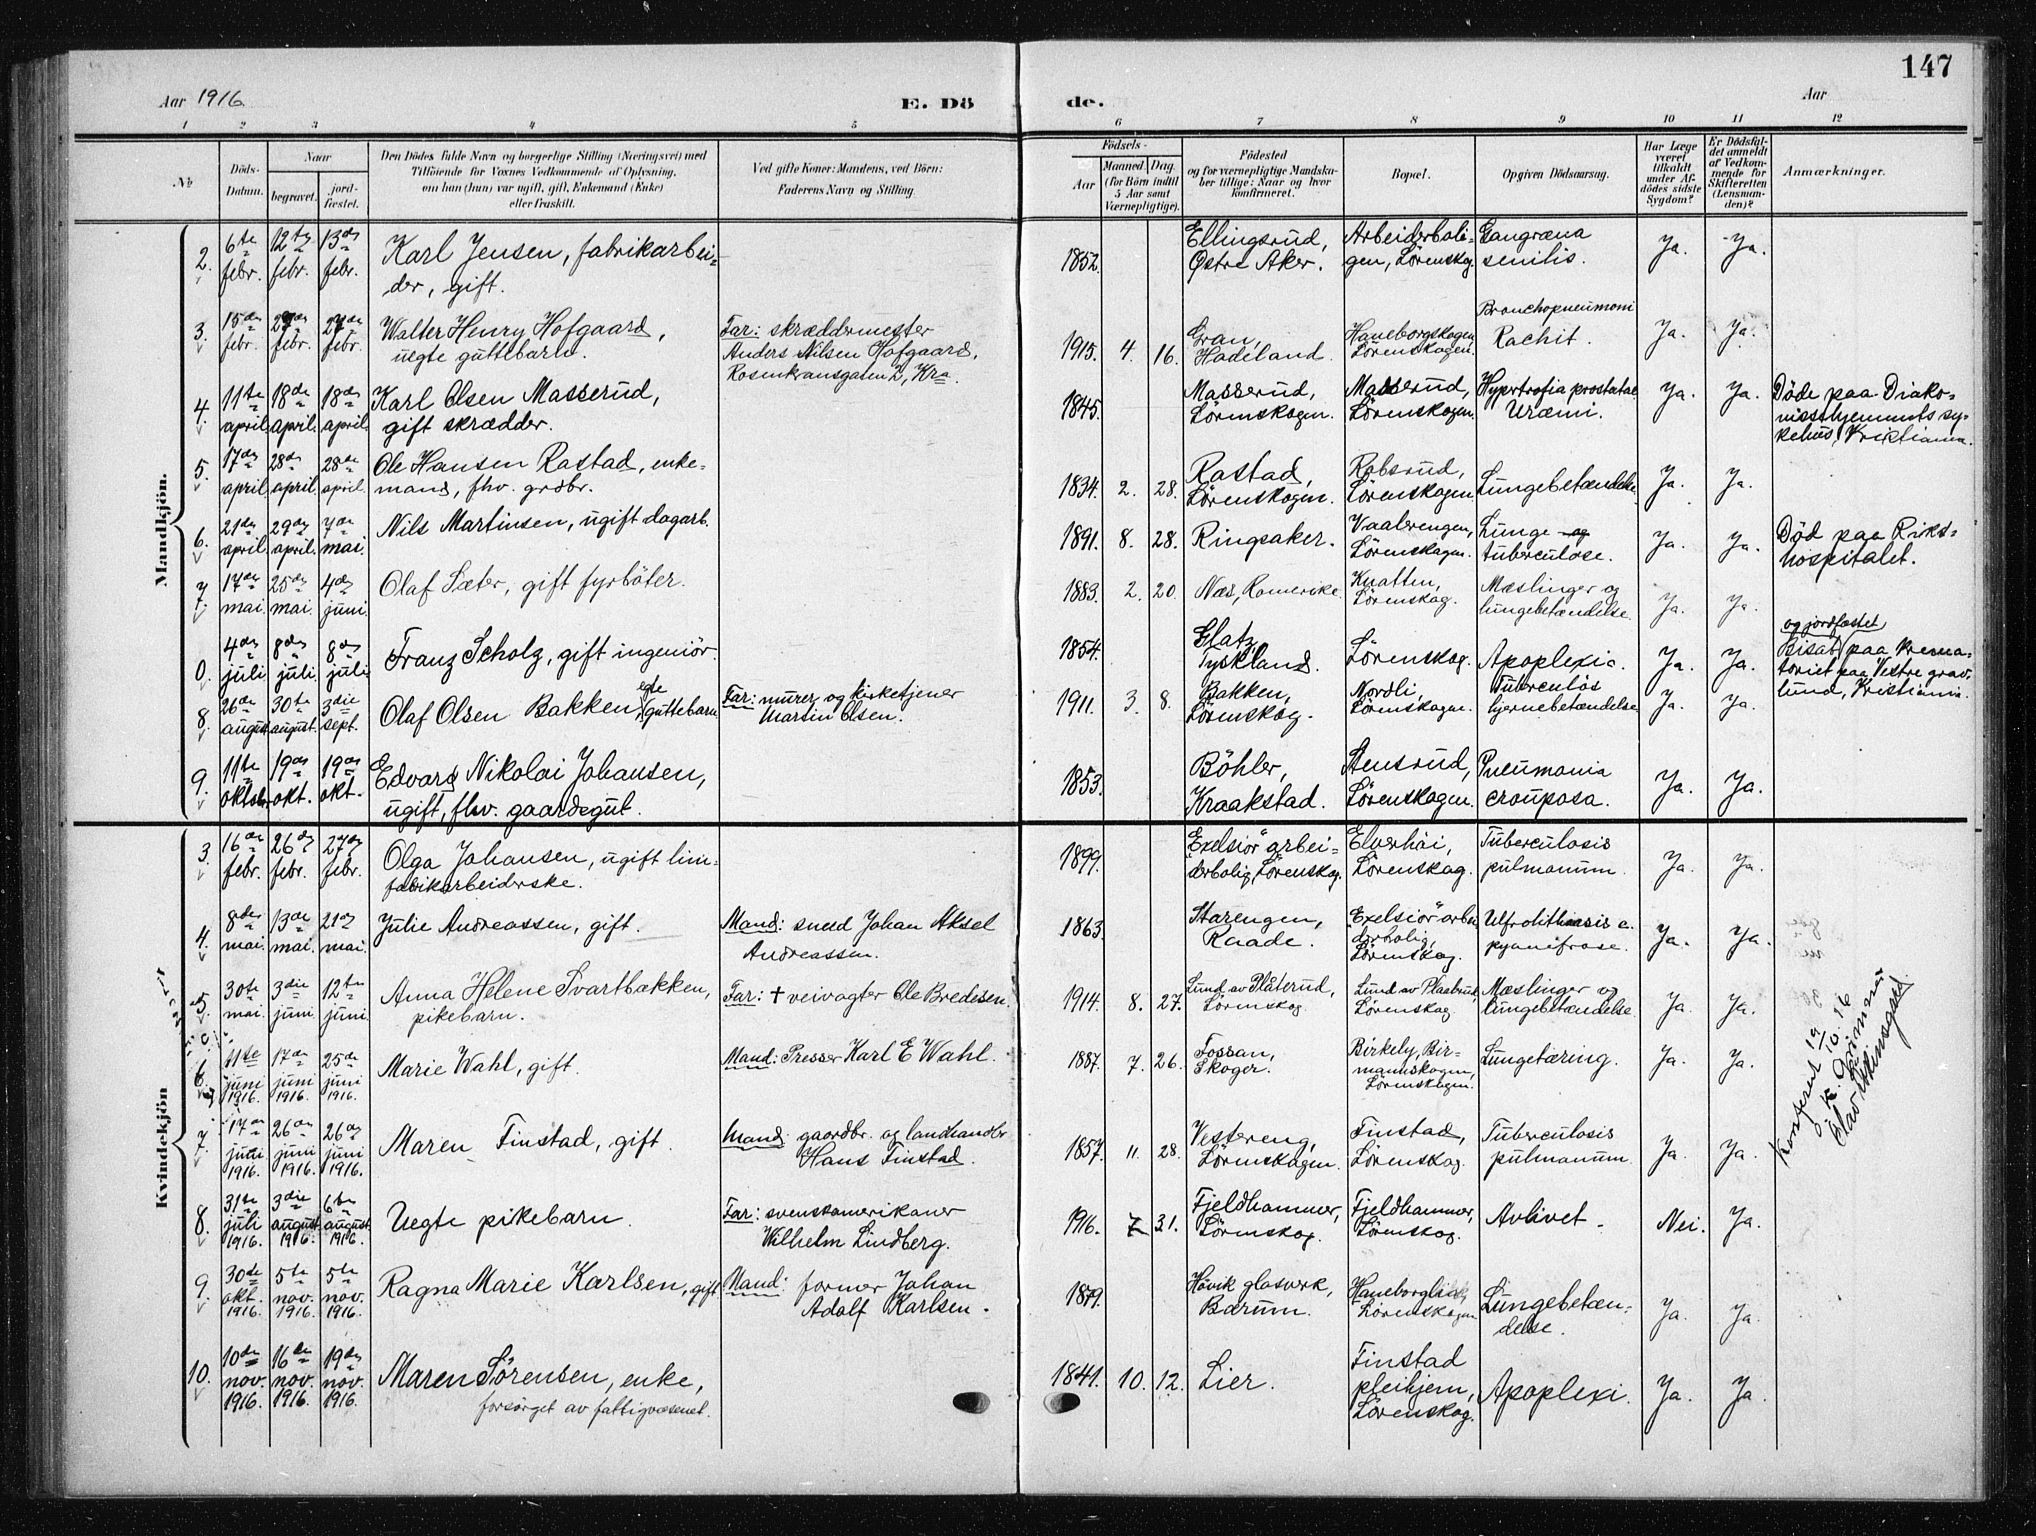 147
Aar 1916. E. Dö de. Aar
1 2 3 4 5 6 7 8 9 10 11 12
№ Döds-Datum. Naar begravet. jord-fæstet. Den Dödes fulde Navn og borgerlige Stilling (Næringsvei) med Tilföiende for Voxnes Vedkommende af Oplysning, om han (hun) var ugift, gift, Enkemand (Enke) eller fraskilt. Ved gifte Koner: Mandens, ved Börn: Faderens Navn og Stilling. Födsels- Aar Maaned Dag. (for Börn indtil 5 Aar samt Værnepligtige). Födested og for værnepligtige Mandskaber tillige: Naar og hvor konfirmeret. Bopæl. Opgiven Dödsaarsag. Har Læge været tilkaldt under Afdödes sidste Sygdom? Er Dödsfaldet anmeldt af Vedkommende for Skifteretten (Lensmanden)? Anmærkninger.
Mandkjön.
2. 6te febr. 12te febr. 13de febr. Karl Jensen, fabrikarbeider, gift. 1852. Ellingsrud, Østre Aker. Arbeiderboligen, Lörenskog. Gangræna senilis. Ja. Ja.
3. 15de febr. 27de febr. 27de febr. Walter Henry Hofgaard, uegte guttebarn. Far: skræddermester Anders Nilsen Hofgaard, Rosenkransgaten 2, Kra. 1915. 4. 16. Gran, Hadeland. Haneborgskogen Lörenskogen. Bronchopneumoni Rachit. Ja. Ja.
4. 11te april. 18de april. 18de april. Karl Olsen Masserud, gift skrædder. 1845. Masserud, Lörenskogen. Masserud, Lörenskogen. Hypertrofia prostatae Uræmi. Ja. Ja. Döde paa Diakonissehjemmets sykehus, Kristiania.
5. 17de april 28de april 28de april. Ole Hansen Rastad, enkemand, fhv. grdbr. 1834. 2. 28. Rastad, Lörenskogen. Robsrud, Lörenskogen Lungebetændelse. Ja. Ja.
6. 21de april. 29de april. 7de mai. Nils Martinsen, ugift dagarb. 1891. 8. 28. Ringsaker. Vaalerengen, Lörenskogen. Lunge- og tuberculose. Ja. Ja. Död paa Rikshospitalet.
7. 17de mai. 25de mai. 4de juni. Olaf Sæter, gift fyrböter. 1883. 2. 20. Næs, Romerike. Knatten, Lörenskog. Mæslinger og lungebetændelse. Ja. Ja.
0. 4de juli. 8de juli. 8de juli. Franz Scholz, gift ingeniör. 1854. Glatz, Tyskland. Lörenskog. Apoplexia. Ja. Ja. Bisat og jordfæstet paa Krematoriet paa Vestre gravlund, Kristiania.
8. 26de august 30te august. 3die sept. Olaf Olsen Bakken, egte guttebarn. Far: murer og kirketjener Martin Olsen. 1911. 3. 8. Bakken, Lörenskog. Nordli, Lörenskogen. Tuberculös hjernebetændelse Ja. Ja.
9. 11te oktober 19de okt. 19de okt. Edvard Nikolai Johansen, ugift, fhv. gaardsgut. 1853. Böhler, Kraakstad. Stensrud, Lörenskogen. Pneumonia crouposa. Ja. Ja.
Kvindekjön
3. 16de febr. 26de febr. 27de febr. Olga Johansen, ugift limfabrikarbeiderske. 1899. "Exelsior" arbeiderbolig, Lörenskog. Elverhöi, Lörenskog. Tuberculosis pulmonum. Ja. Ja.
4. 8de mai. 13de mai. 21de mai. Julie Andreassen, gift. Mand: smed Johan Aksel Andreassen. 1863. Starengen, Raade. "Exelsior" arbeiderbolig, Lörenskog. pyonefrose. Ja. Ja.
5. 30te mai. 3die juni. 12te juni. Anna Helene Svartbækken, pikebarn. Far: + veivogter Ole Bredesen. 1914. 8. 27. Lund av Plåterud, Lörenskog Lund av Plaaterud, Lörenskog Mæslinger og lungebetændelse. Ja. Ja.
6. 11te juni 1916. 17de juni 1916. 25de juni 1916. Marie Wahl, gift. Mand: Presser Karl E Wahl. 1887. 7. 26. Fossan, Skoger. Birkely, Birmannskogen, Lörenskogen. Lungetæring. Ja. Ja.
7. 17de juni 1916. 26de juni 1916. 26de juni 1916. Maren Finstad, gift. Mand: gaardbr. og landhandler Hans Finstad. 1857. 11. 28. Vestereng, Lörenskogen. Finstad, Lörenskog. Tuberculosis pulmonum. Ja. Ja.
Konferert 19/10-16 K. Grimnæs Olav Skinsgad
8. 31te juli 1916. 3die august 1916. 6te august 1916. Uegte pikebarn. Far: svenskamerikaner Wilhelm Lindberg. 1916. 7 31. Fjeldhammer, Lörenskog. Fjeldhammer, Lörenskog. Avlivet. Nei. Ja.
9. 30te okt. 1916. 5te nov. 1916. 5te nov. 1916. Ragna Marie Karlsen, gift Mand: former Johan Adolf Karlsen. 1879. Hövik glasverk, Bærum. Lörenskogen Lungebetændelse. Ja. Ja.
10. 10de nov. 1916. 16de nov. 1916. 19de nov. 1916. Maren Sörensen, enke, forsörget av fattigvæsenet. 1841. 10. 12. Lier. Finstad pleihjem, Lörenskog. Apoplexi. Ja. Ja.